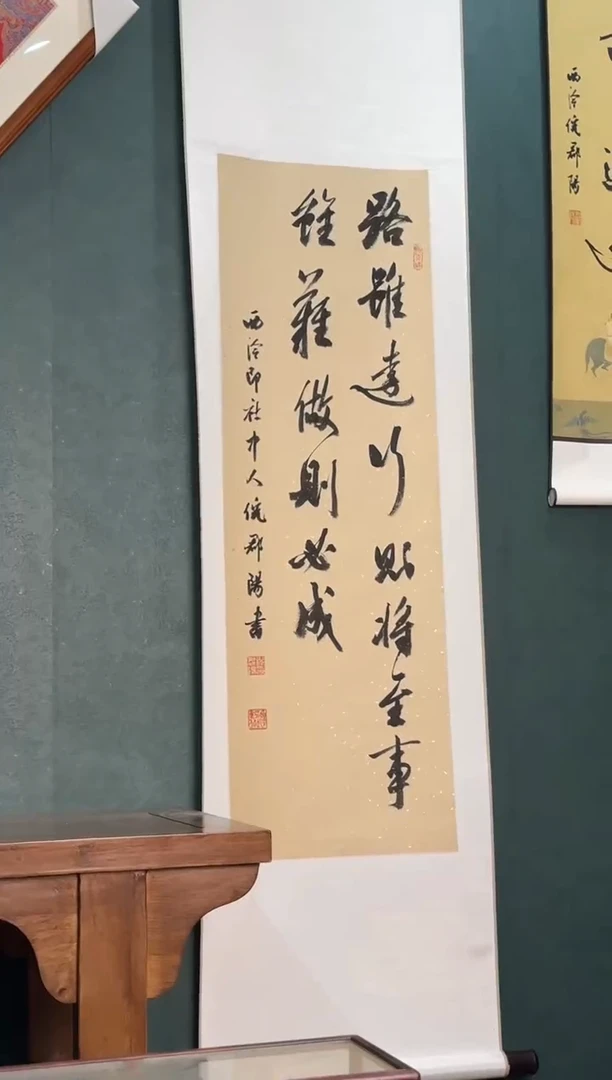 路雖遠行則將至事
雖難做則必成
西泠印社中人倪郡陽書
西泠倪郡陽